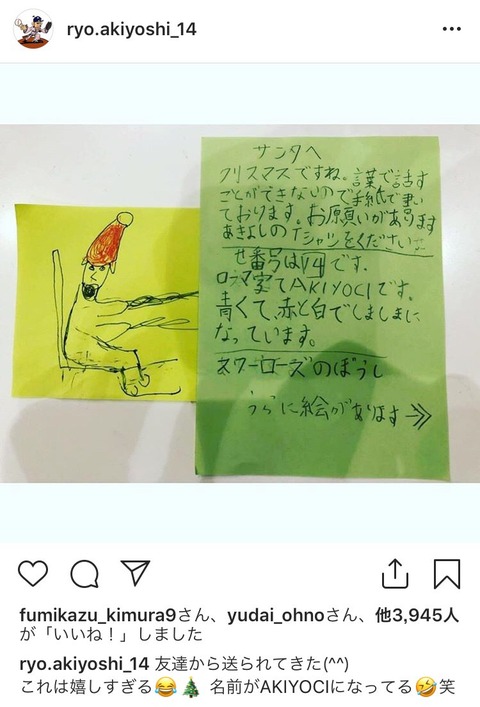 ryo.akiyoshi_14
サンタへ
クリスマスですね。言葉で話す
ことができないので手紙で書い
ております。お原頁いがあります
あきよしのTシャツをください
せ番号はV4です.
ローマ字でAKIYOCIです。
青くて、赤と白でしましまに
なっています。
スワローズのぼうし
うらに絵があります→
fumikazu_kimura9さん、yudai_ohnoさん、他3,945人
が「いいね！」しました
ryo.akiyoshi_14 友達から送られてきた(^^)
これは嬉しすぎる😂🎄 名前がAKIYOCIになってる🤣笑